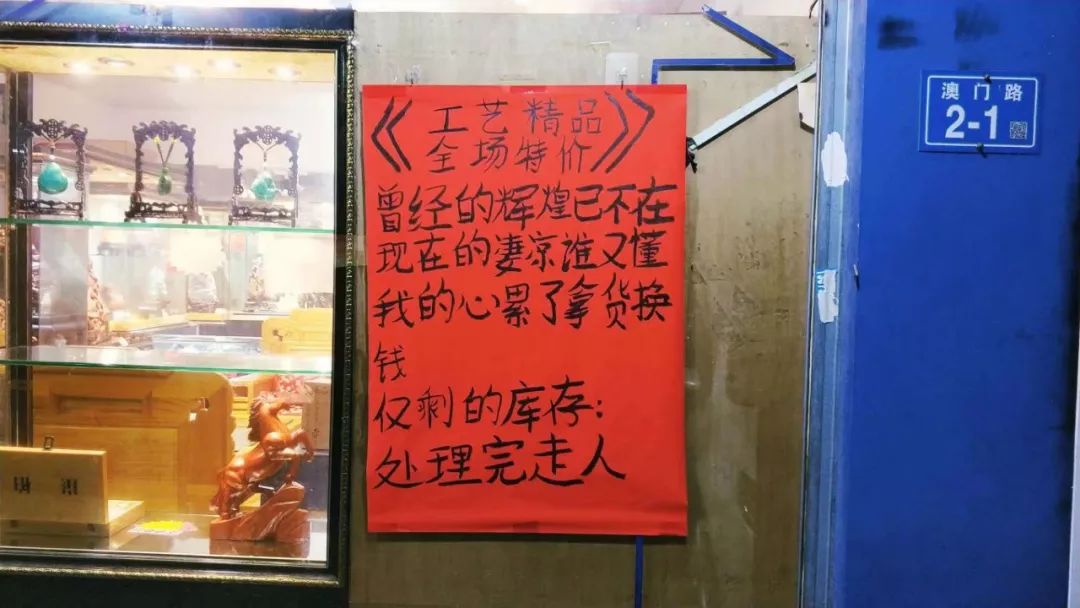 《工艺精品
全场特价》
曾经的辉煌已不在
现在的凄凉谁又懂
我的心累了拿货换
钱
仅剩的库存:
处理完走人
澳门路
2-1